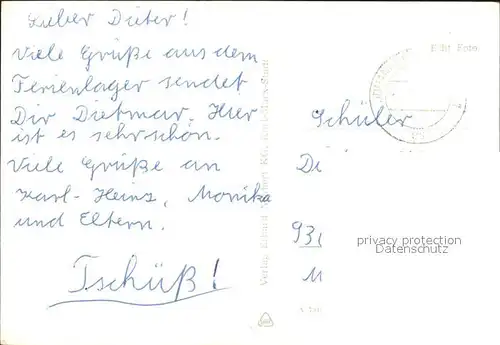 Lieber Dieter!
Viele Grüße aus dem
Ferienlager sendet
Dir Dietmar. Hier
ist es sehr schön.
Viele Grüße an
Karl-Heinz, Monika
und Eltern.
Tschüß!
Echt Foto
Schüler
Di
931
M
privacy protection
Datenschutz
Verlag Erhard KG.